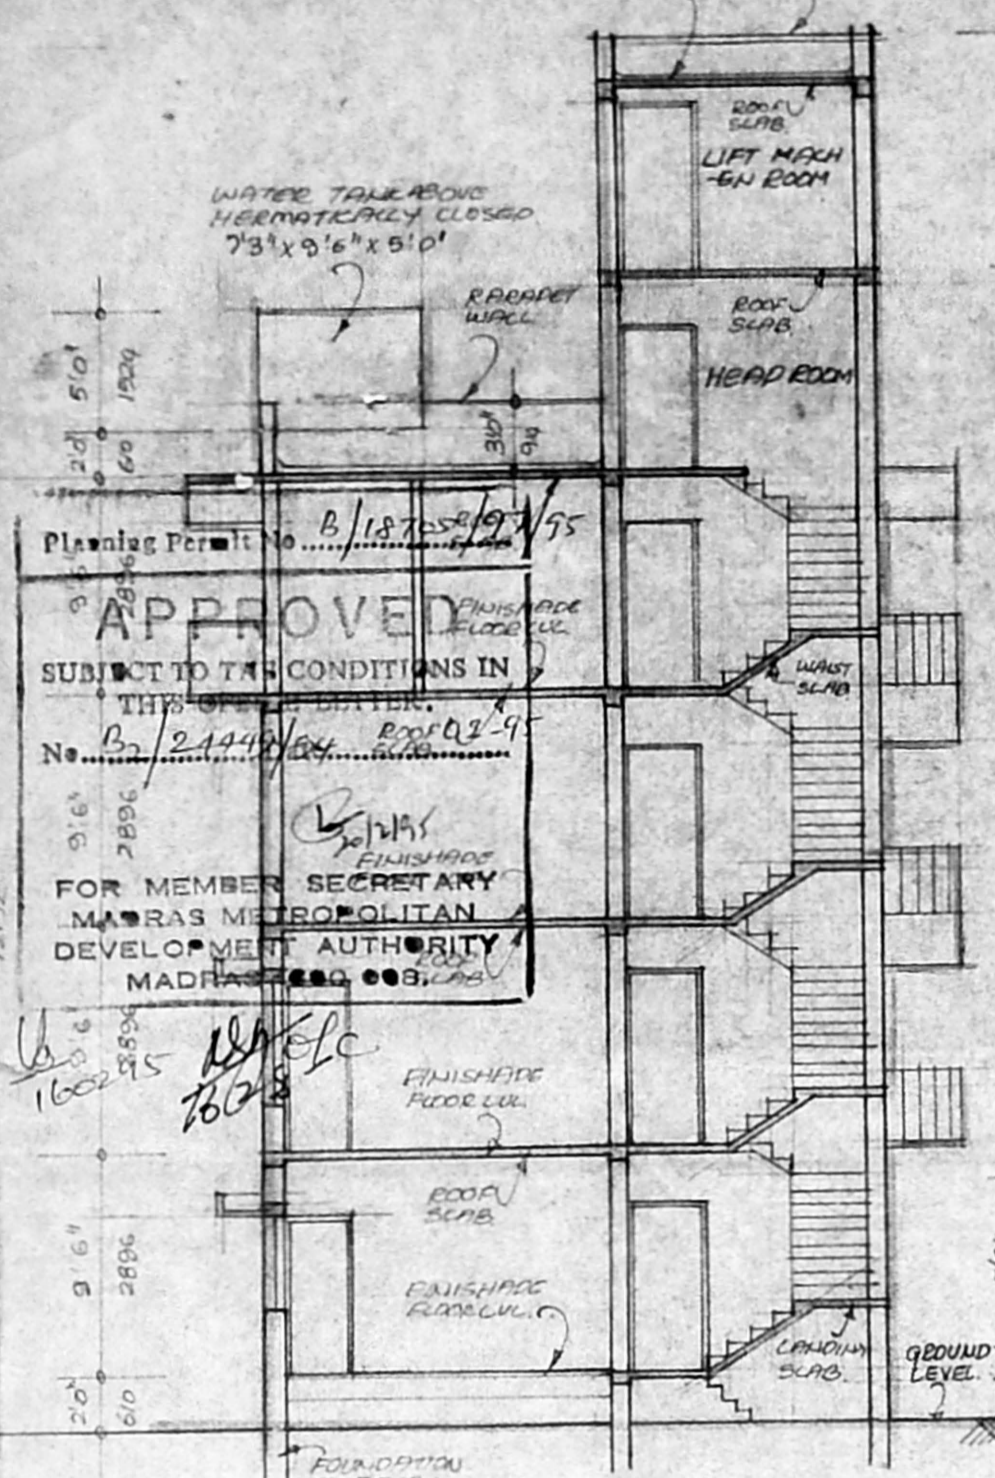 ROOF
SLAB.
LIFT MACH
-EN ROOM
WATER TANK ABOVE
HERMATICALLY CLOSED
7'3" X 9'6" X 5'0"
RARAPET
WALL
ROOF
SLAB.
HEAD ROOM
5'0"
1524
2'0"
60
3'0"
Planning Permit No
APPROVED
FINISHADE
FLOOR LVL
SUBJECT TO THE CONDITIONS IN
THIS OFFICE LETTER.
No.
ROOF
SLAB
WAIST
SLAB
2896
9'6"
2896
20/2/95
FINISHADE
FOR MEMBER SECRETARY
MADRAS METROPOLITAN
DEVELOPMENT AUTHORITY
MADRAS-600 008.
ROOF
SLAB
2896
FINISHADE
FLOOR LVL.
ROOF
SLAB.
9'6"
2896
FINISHADE
FLOOR LVL.
LANDING
SLAB.
GROUND
LEVEL.
2'0"
610
FOUNDATION